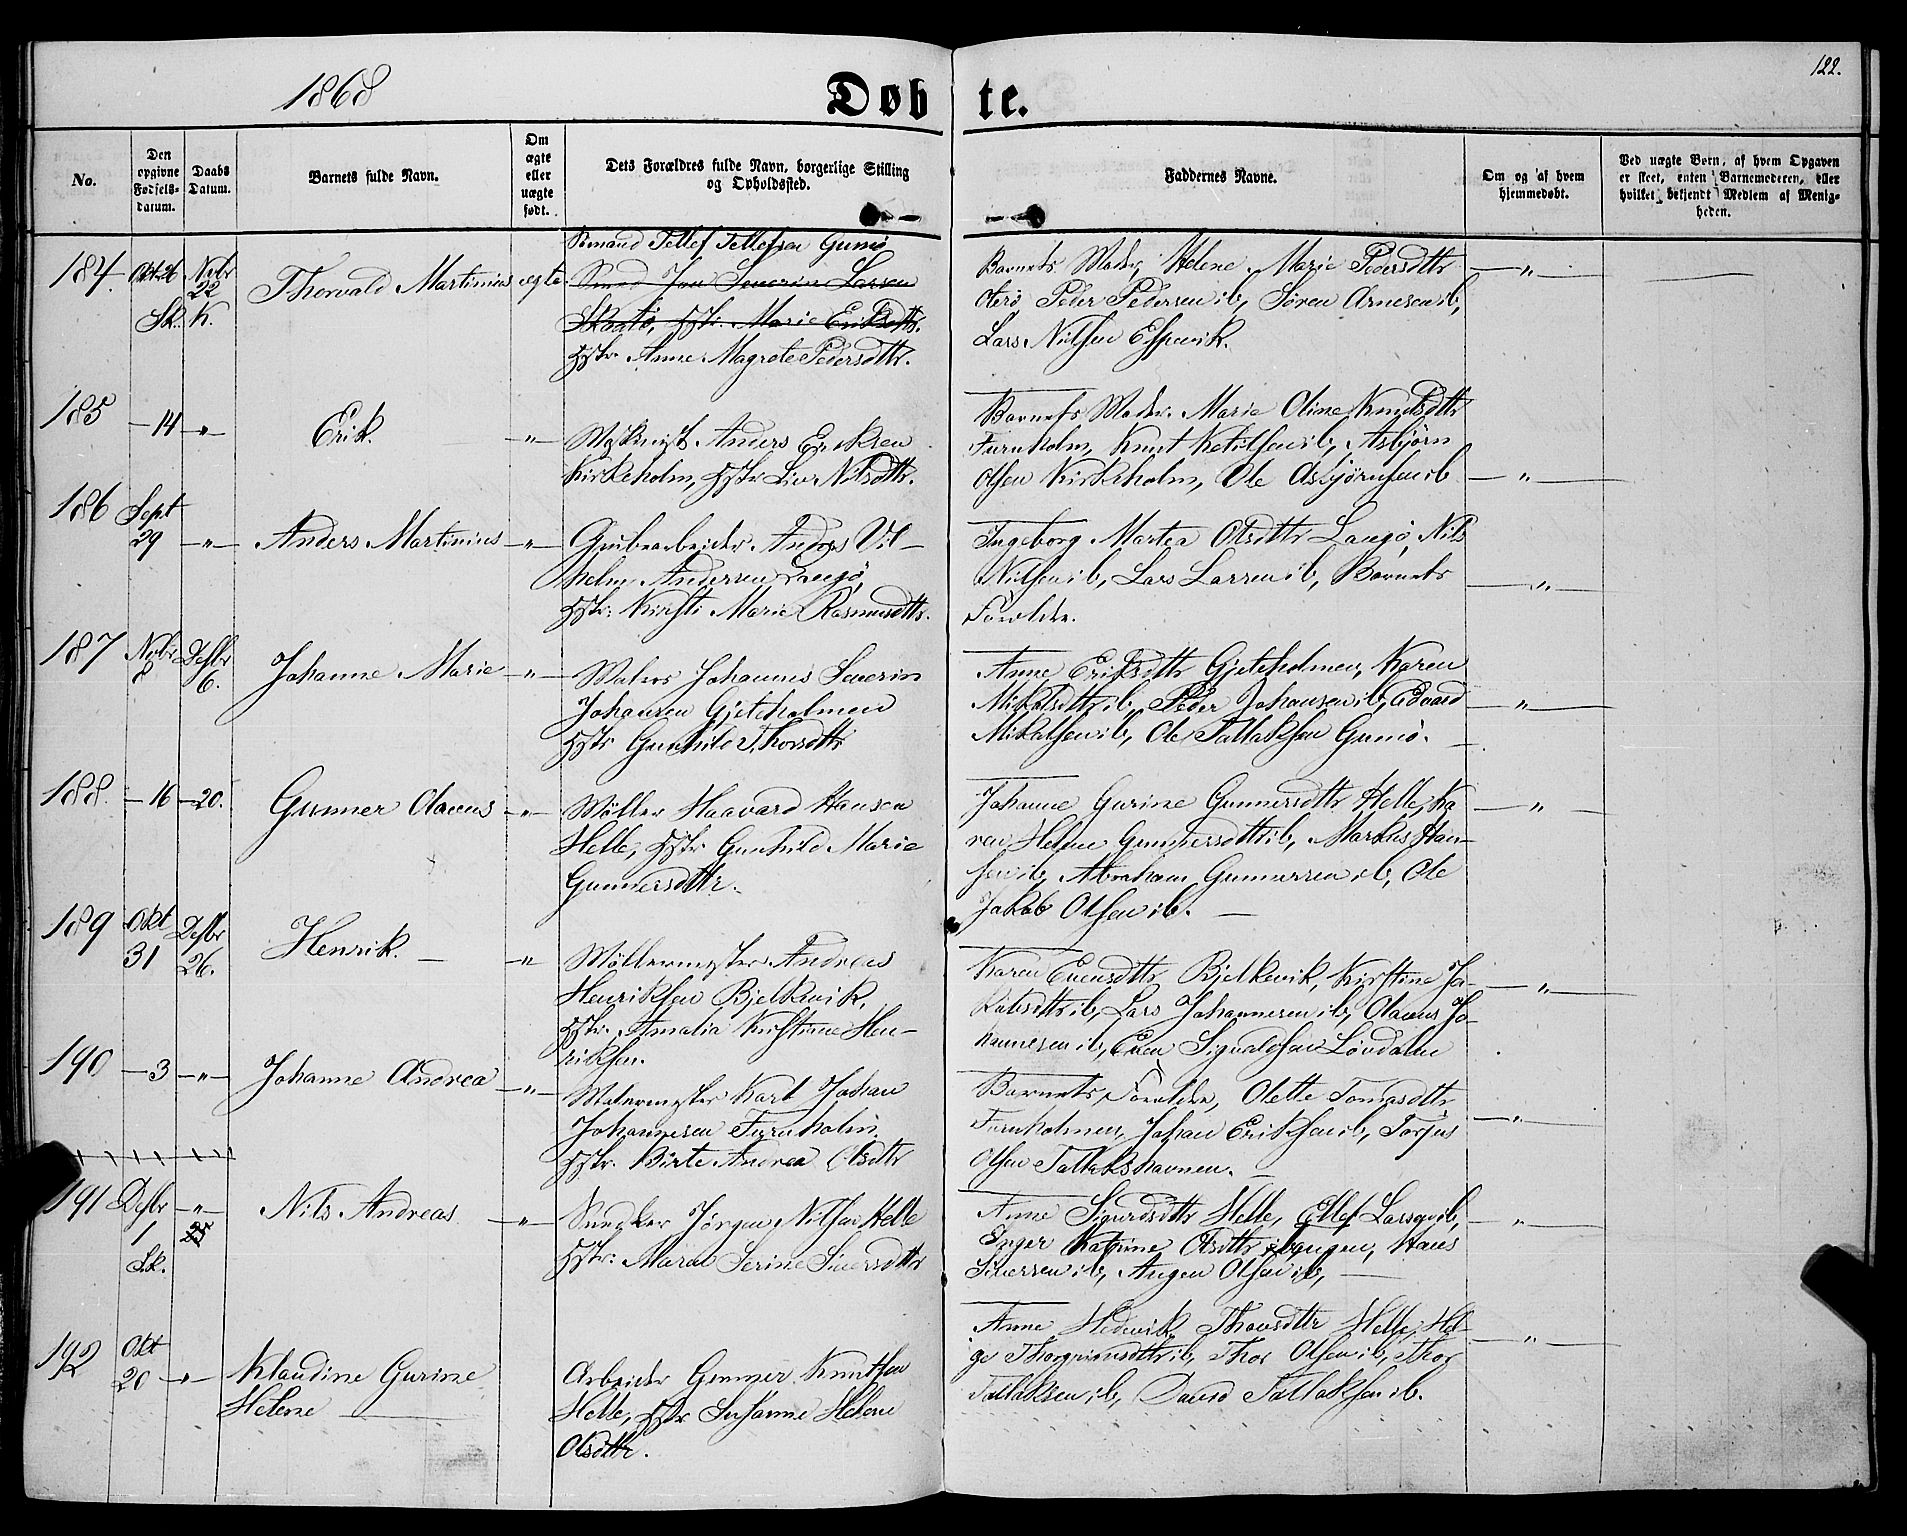 1868
Døbte.
122.
No.
Den opgivne Fødsels-datum.
Daabs Datum.
Barnets fulde Navn.
Om ægte eller uægte født.
Dets Forældres fulde Navn, borgerlige Stilling
og Opholdssted.
Faddernes Navne.
Om og af hvem
hjemmedøbt.
Ved uægte Børn, af hvem Opgaven
er skeet, enten Barnemoderen, eller
hvilket bekjendt Medlem af Menig-
heden.
184. Okt 26 Sk. Novbr 22 K. Thorvald Martinius ægte
Sømand Tellef Tellefsen Gumø
Smed Jon Severin Larsen
Skaatø, Hstr. Marie Eriksdttr.
Hstr. Anne Magrete Pedersdttr.
Barnets Moder, Helene Marie Pedersdttr
Oterø Peder Pedersen ib, Søren Arnesen ib,
Lars Nilsen Espevik. — " —
185 — 14 — " — Erik. — " —
Anders Eriksen
Kirkeholm, Hstr Live Nilsdttr.
Barnets Moder. Maria Oline Knutsdttr
Furuholm, Knut Ketilsen ib, Asbjørn
Olsen Kirkeholm, Ole Asbjørnsen ib — " —
186 Sept 29 — " — Anders Martinius — " —
Grubearbeider Anders Vil-
helm Andersen Langø,
Hstr. Kirsti Marie Rasmusdttr.
Ingeborg Martea Olsdttr Langø, Nils
Nilsen ib, Lars Larsen ib, Barnets — " —
Forældre.
187 Novbr 8 Desbr 6. Johanne Marie — " —
Matros Johannes Severin
Johansen Gjeteholmen
Hstr Gunhild Thorsdttr
Anne Eriksdttr Gjeteholmen, Karen
Mikalsdttr ib, Peder Johansen ib, Edvard — " —
Mikalsen ib, Ole Tallaksen Gumø. —
188. — 16 — 20. Gunner Olaves — " —
Møller Haavard Hansen
Helle, Hstr Gunhild Marie
Gunnersdttr.
Johanne Gurine Gunnersdttr Helle, Ka — " —
ren Helene Gunnersdttr ib, Markus Han-
sen ib, Abraham Gunnersen ib, Ole
Jakob Olsen ib. —
189 Okt 31 Desbr 26. Henrik. — — " —
Møllermester Andreas
Henriksen Bjelkevik,
Hstr. Amalia Kristiane Hen-
riksen.
Karen Evensdttr Bjelkevik, Kirstine Ja- — " —
kobsdttr ib, Lars Johannesen ib, Olaves Jo-
hannesen ib, Even Sigvaldsen Løvdalen
190 — 3 — " — Johanne Andrea — " —
Karl Johan
Johannesen Furuholm,
Hstr. Birte Andrea Olsdttr
Barnets Forældre, Olette Tomasdttr
Furuholmen, Johan Eriksen ib, Torjus — " —
Olsen Tallakshavnen. —
191 Desbr 1 Sk. — " — 25 Nils Andreas — " —
Snedker Jørgen Nilsen Helle
Hstr. Maren Serine Siversdttr
Anne Sigurdsdttr Helle, Ellef Larsen ib, — " —
Inger Katrine Olsdttr Haugen, Hans
Siversen ib, Augen Olsen ib, —
192 Okt 20 — " — Klaudine Gurine
Helene —
Arbeider Gunner Knutsen
Helle, Hstr Susanne Helene
Olsdttr.
Anne Hedevik Thorsdttr Helle, Hel- — " —
ge Thorgrimsdttr ib, Thor Olsen ib, Thor
Tallaksen ib, David Tallaksen ib.